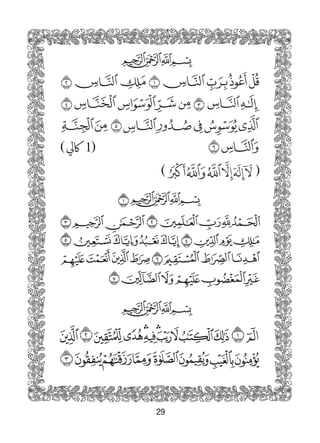 بِسْمِ اللَّهِ الرَّحْمَٰنِ الرَّحِيمِ
قُلْ أَعُوذُ بِرَبِّ النَّاسِ ۝١ مَلِكِ النَّاسِ ۝٢
إِلَٰهِ النَّاسِ ۝٣ مِن شَرِّ الْوَسْوَاسِ الْخَنَّاسِ ۝٤
الَّذِي يُوَسْوِسُ فِي صُدُورِ النَّاسِ ۝٥ مِنَ الْجِنَّةِ
وَالنَّاسِ ۝٦ (1 كالي)
( لَا إِلَٰهَ إِلَّا اللَّهُ وَاللَّهُ أَكْبَرُ )
بِسْمِ اللَّهِ الرَّحْمَٰنِ الرَّحِيمِ ۝١
الْحَمْدُ لِلَّهِ رَبِّ الْعَالَمِينَ ۝٢ الرَّحْمَٰنِ الرَّحِيمِ ۝٣
مَالِكِ يَوْمِ الدِّينِ ۝٤ إِيَّاكَ نَعْبُدُ وَإِيَّاكَ نَسْتَعِينُ ۝٥
اهْدِنَا الصِّرَاطَ الْمُسْتَقِيمَ ۝٦ صِرَاطَ الَّذِينَ أَنْعَمْتَ عَلَيْهِمْ
غَيْرِ الْمَغْضُوبِ عَلَيْهِمْ وَلَا الضَّالِّينَ ۝٧
بِسْمِ اللَّهِ الرَّحْمَٰنِ الرَّحِيمِ
الم ۝١ ذَٰلِكَ الْكِتَابُ لَا رَيْبَ فِيهِ هُدًى لِّلْمُتَّقِينَ ۝٢ الَّذِينَ
يُؤْمِنُونَ بِالْغَيْبِ وَيُقِيمُونَ الصَّلَاةَ وَمِمَّا رَزَقْنَاهُمْ يُنفِقُونَ ۝٣
29